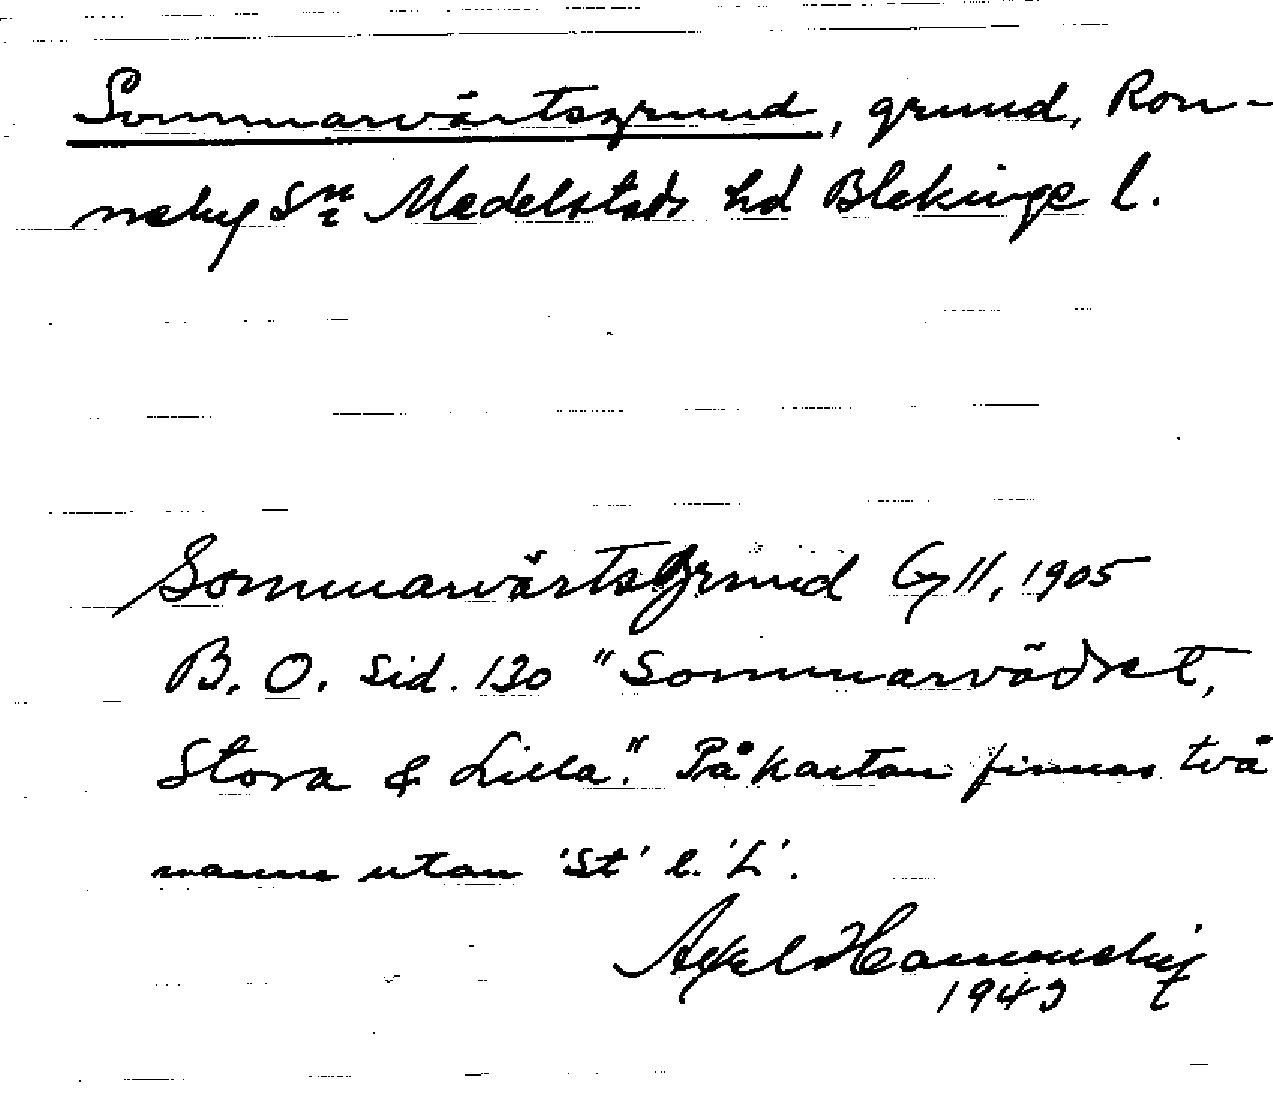 Sommarvärtsgrund, grund, Ron-
neby Sn Medelstads hd Blekinge l.
Sommarvärtsgrund G 11, 1905
B. O. Sid. 130 "Sommarvädret,
Stora & Lilla". På kartan finnas två
namn utan 'St' l. 'L'.
Axel
1943